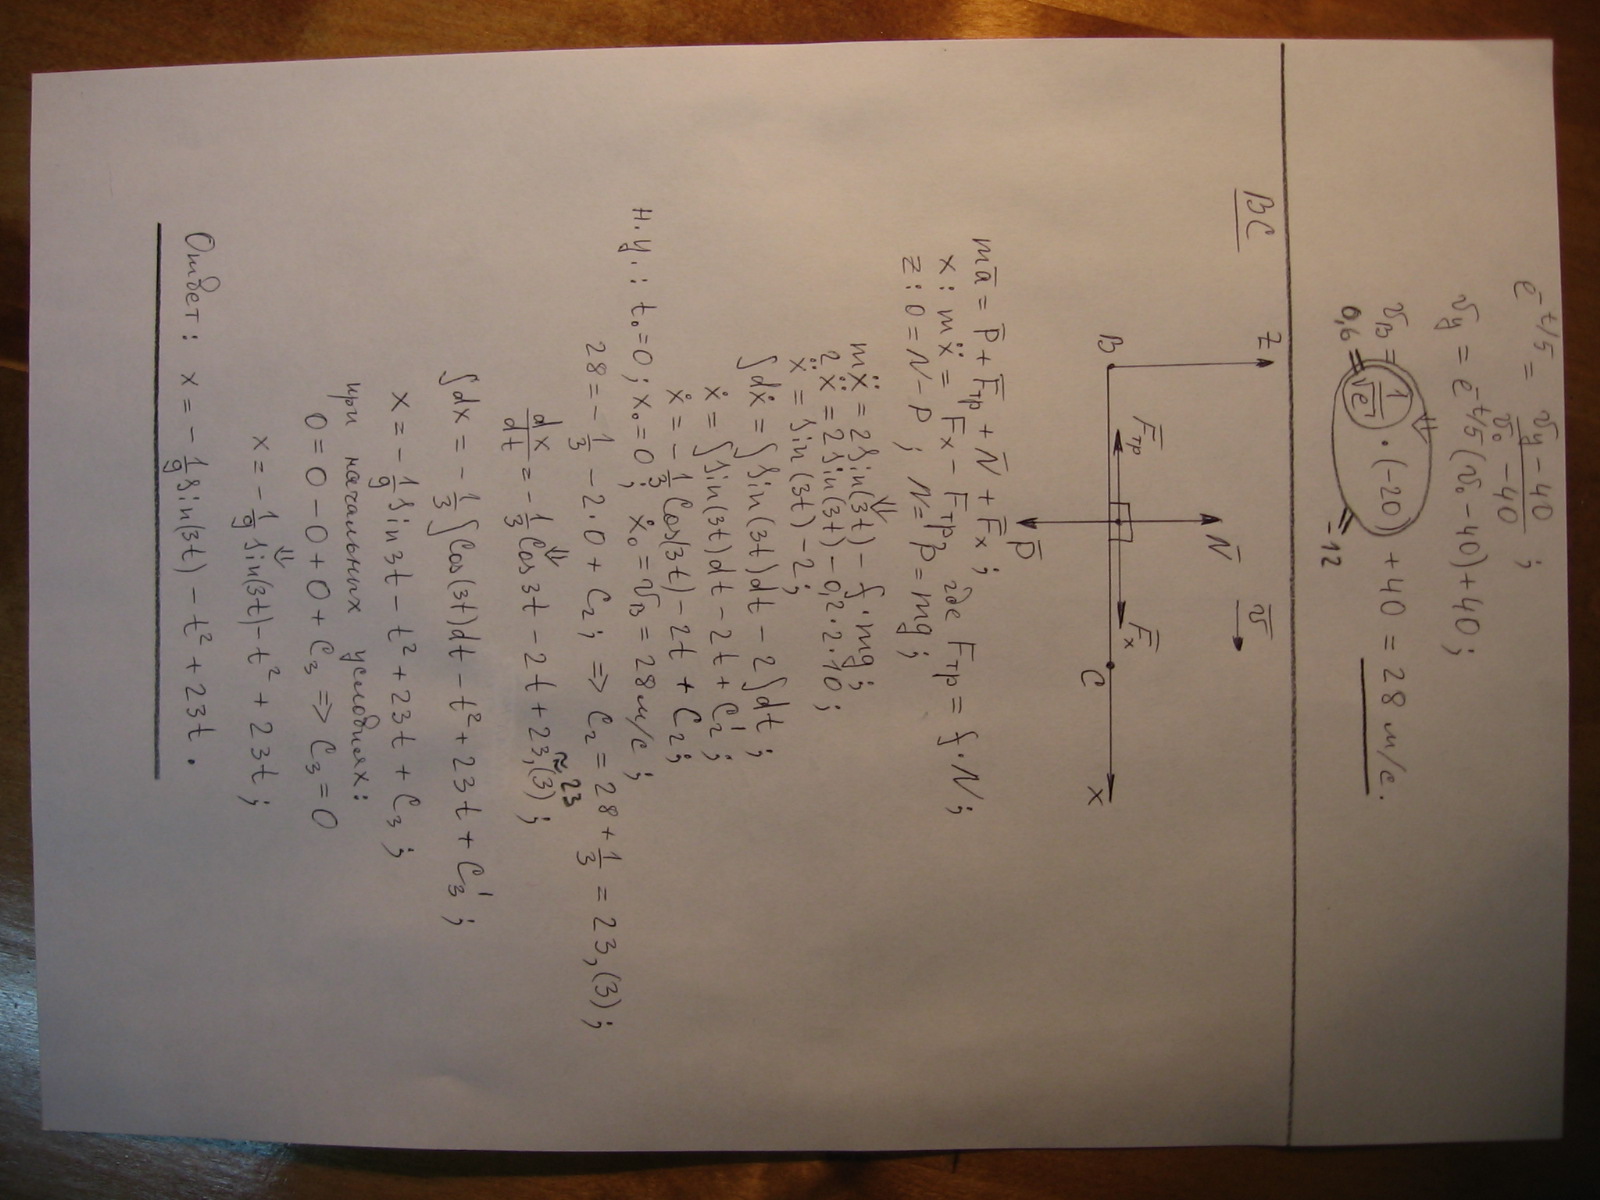 e^{-t/5} = (v_y - 40)/(v_0 - 40) ;
v_y = e^{-t/5}(v_0 - 40) + 40 ;
⇓
v_B = 1/√e · (-20) + 40 = 28 м/с.
0,6 = -12
BC
z N̄ v̄
F̄тр F̄x
B C x
P̄
mā = P̄ + F̄тр + N̄ + F̄x ;
x : mẍ = Fx - Fтр, где Fтр = f · N ;
z : 0 = N - P ; N = P = mg ;
⇓
mẍ = 2sin(3t) - f · mg ;
2ẍ = 2sin(3t) - 0,2 · 2 · 10 ;
ẍ = sin(3t) - 2 ;
∫dẋ = ∫sin(3t)dt - 2∫dt ;
ẋ = ∫sin(3t)dt - 2t + C₂' ;
ẋ = - 1/3 Cos(3t) - 2t + C₂ ;
Н.у. : t₀ = 0 ; x₀ = 0 ; ẋ₀ = v_B = 28 м/с ;
28 = - 1/3 - 2·0 + C₂ ; => C₂ = 28 + 1/3 = 23,(3) ;
⇓ ≈ 23
dx/dt = - 1/3 Cos 3t - 2t + 23,(3) ;
∫dx = - 1/3 ∫Cos(3t)dt - t² + 23t + C₃' ;
x = - 1/9 sin 3t - t² + 23t + C₃ ;
при начальных условиях :
0 = 0 - 0 + 0 + C₃ => C₃ = 0
⇓
x = - 1/9 sin(3t) - t² + 23t ;
Ответ : x = - 1/9 sin(3t) - t² + 23t .